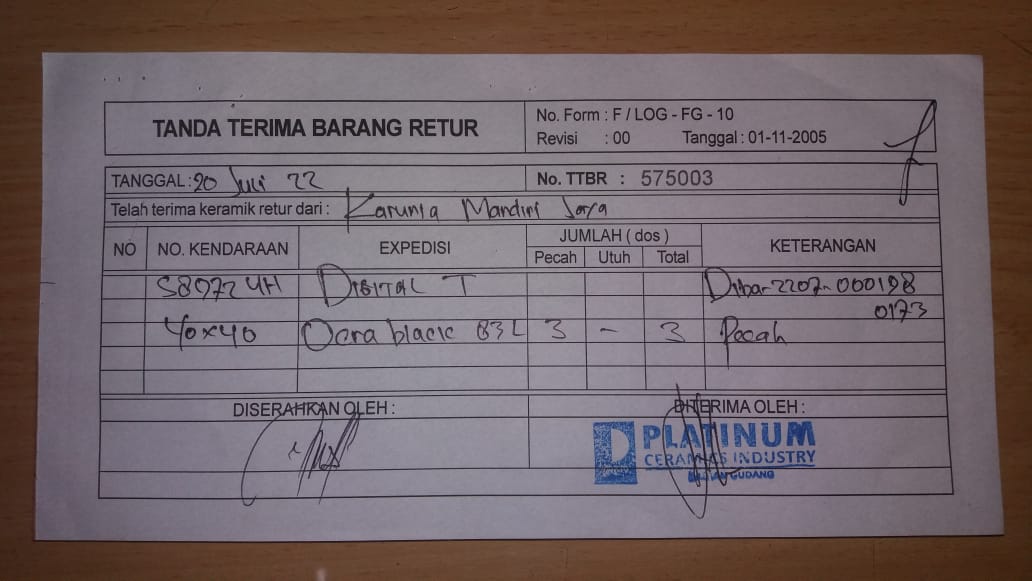 TANDA TERIMA BARANG RETUR
No. Form : F / LOG - FG - 10
Revisi : 00 Tanggal : 01-11-2005
TANGGAL : 20 Juli 22
No. TTBR : 575003
Telah terima keramik retur dari : Karunia Mandiri Jaya
NO NO. KENDARAAN EXPEDISI JUMLAH ( dos ) KETERANGAN
Pecah Utuh Total
DIGITAL T
0173
40x40 black 83L 3 - 3 Pecah
DISERAHKAN OLEH : DITERIMA OLEH :
PLATINUM
CERAMICS INDUSTRY
BAGIAN GUDANG